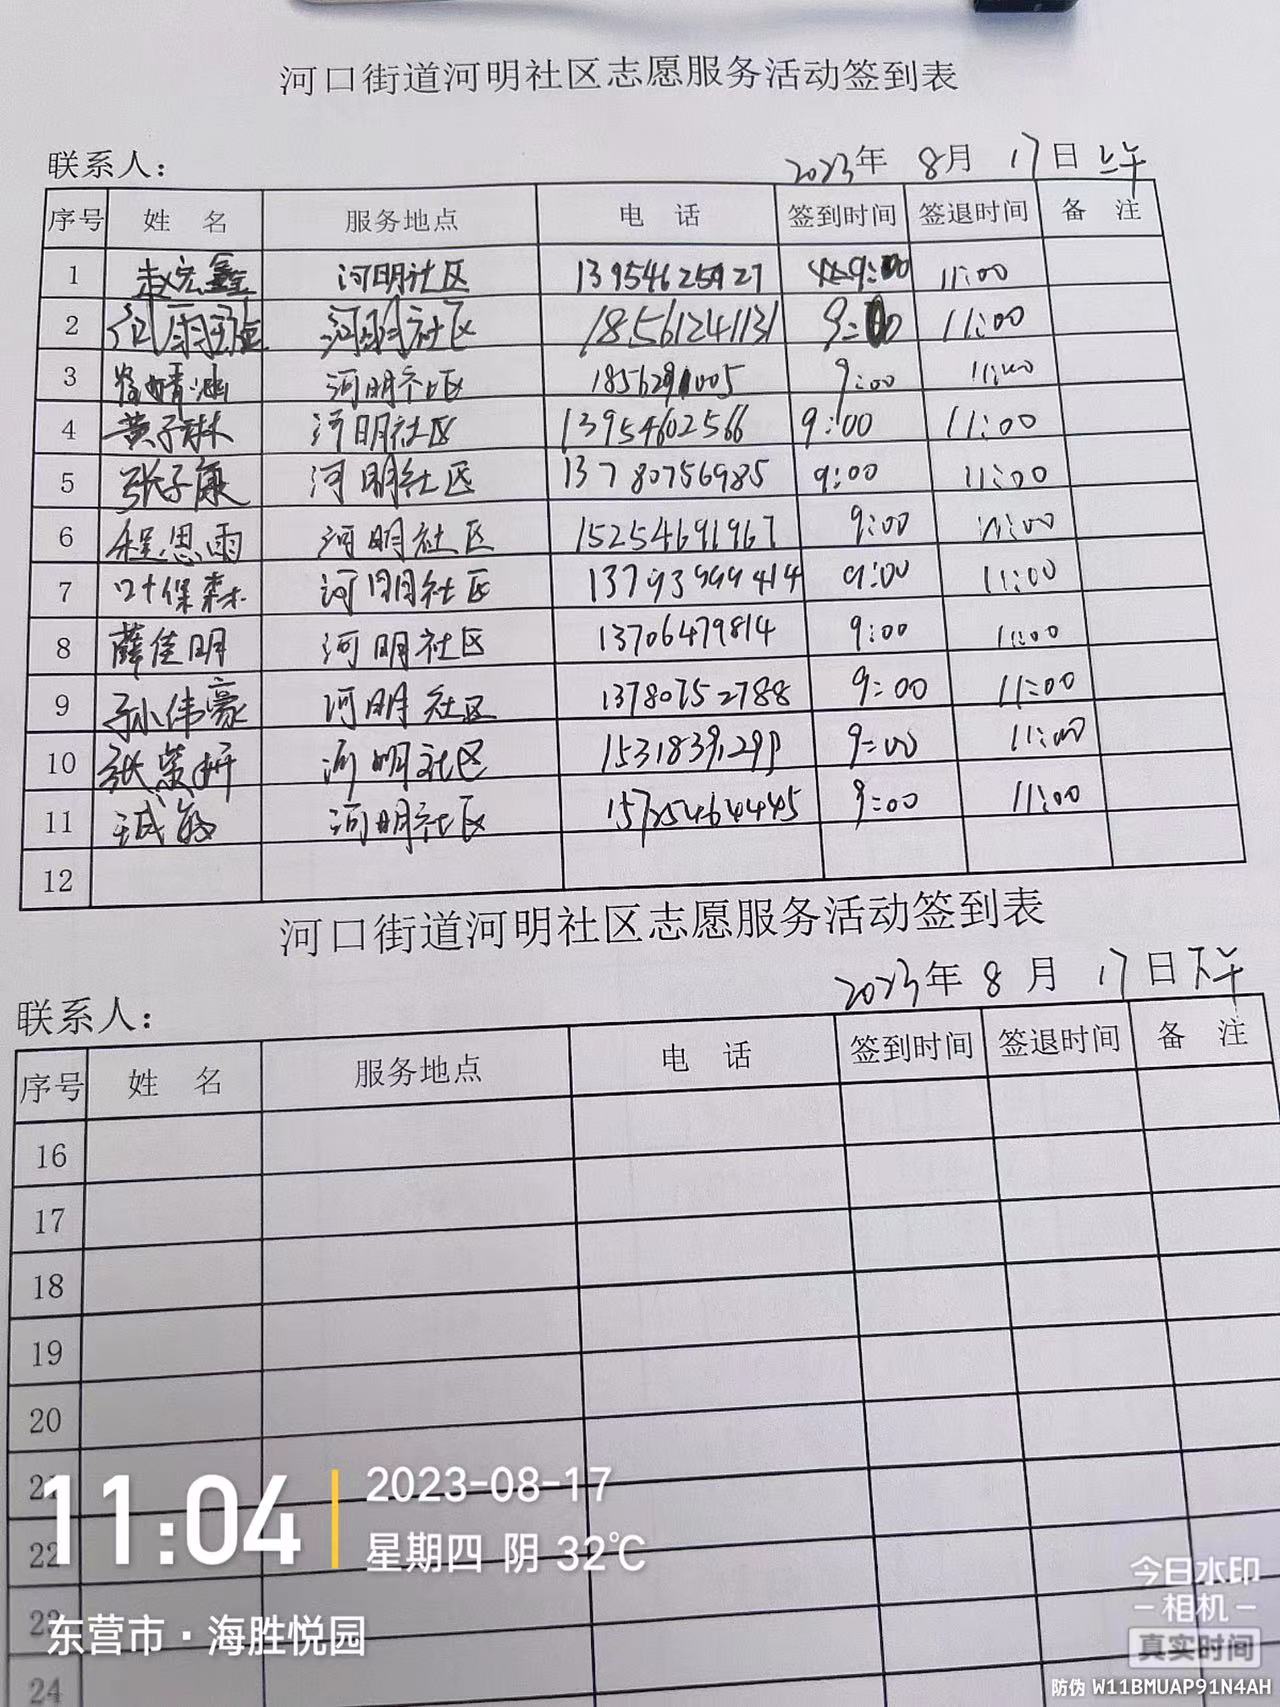 河口街道河明社区志愿服务活动签到表
联系人： 2023年 8月 17日 上午
序号 姓 名 服务地点 电 话 签到时间 签退时间 备 注
1 赵宏鑫 河明社区 13954625927 9:00 11:00
2 河明社区 18561241131 9:00 11:00
3 河明社区 9:00 11:00
4 黄子琳 河明社区 13954602566 9:00 11:00
5 张子康 河明社区 13780756985 9:00 11:00
6 程思雨 河明社区 15254691967 9:00 11:00
7 叶保森 河明社区 13793999414 9:00 11:00
8 薛佳明 河明社区 13706479814 9:00 11:00
9 孙伟豪 河明社区 13780752788 9:00 11:00
10 河明社区 15318391299 9:00 11:00
11 河明社区 15725464445 9:00 11:00
12
河口街道河明社区志愿服务活动签到表
联系人： 2023年 8月 17日 下午
序号 姓 名 服务地点 电 话 签到时间 签退时间 备 注
16
17
18
19
20
21
22
23
24
11:04
2023-08-17
星期四 阴 32℃
东营市·海胜悦园
今日水印
相机
真实时间
防伪 W11BMUAP91N4AH